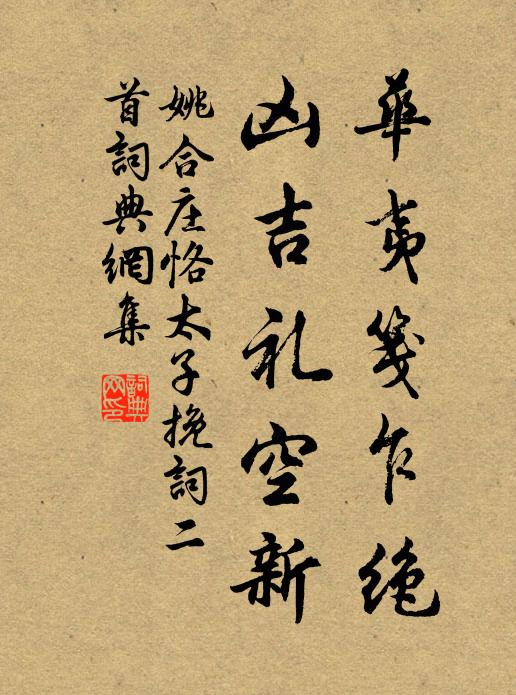 華夷箋乍絶
凶吉礼空新
姚合庄恪太子挽詞二
首詞典網集
詞典
网印